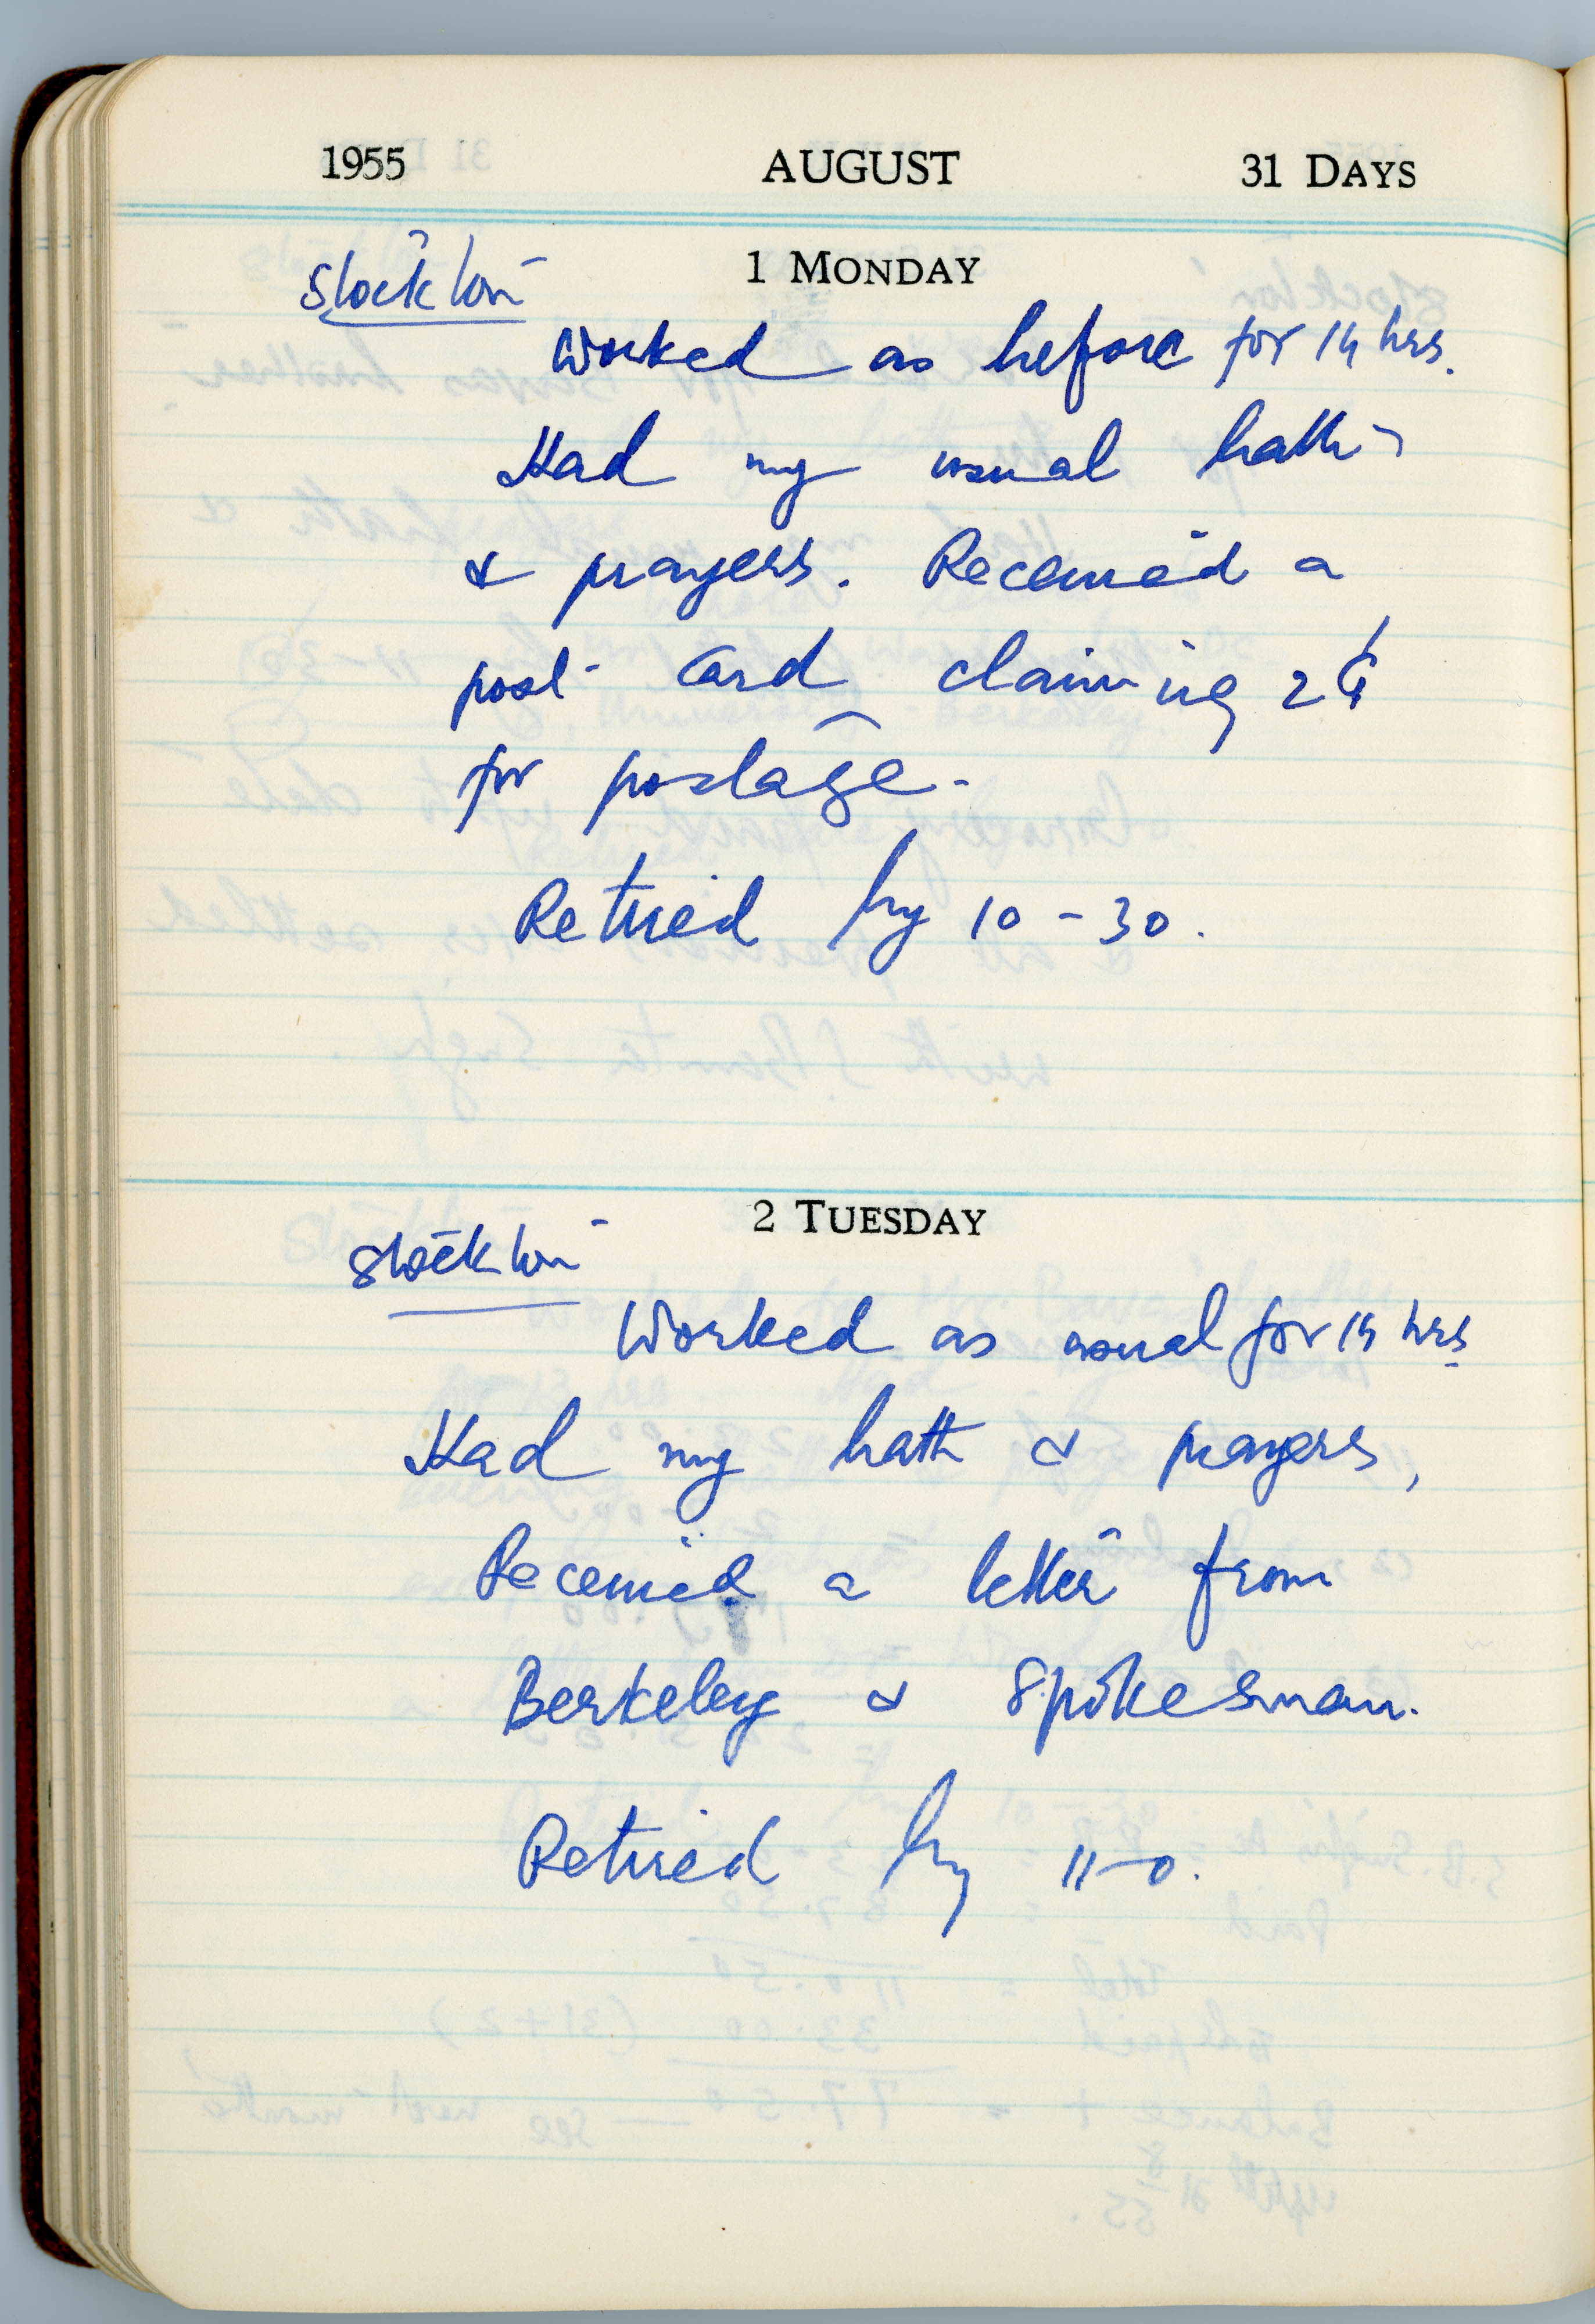 1955 AUGUST 31 DAYS
1 MONDAY
Stockton
Worked as before for 14 hrs.
Had my usual bath
& prayers. Received a
post card claiming 2¢
for postage.
Retired by 10-30.
2 TUESDAY
Stockton
Worked as usual for 14 hrs
Had my bath & prayers,
Received a letter from
Berkeley & Spokesman.
Retired by 11-0.